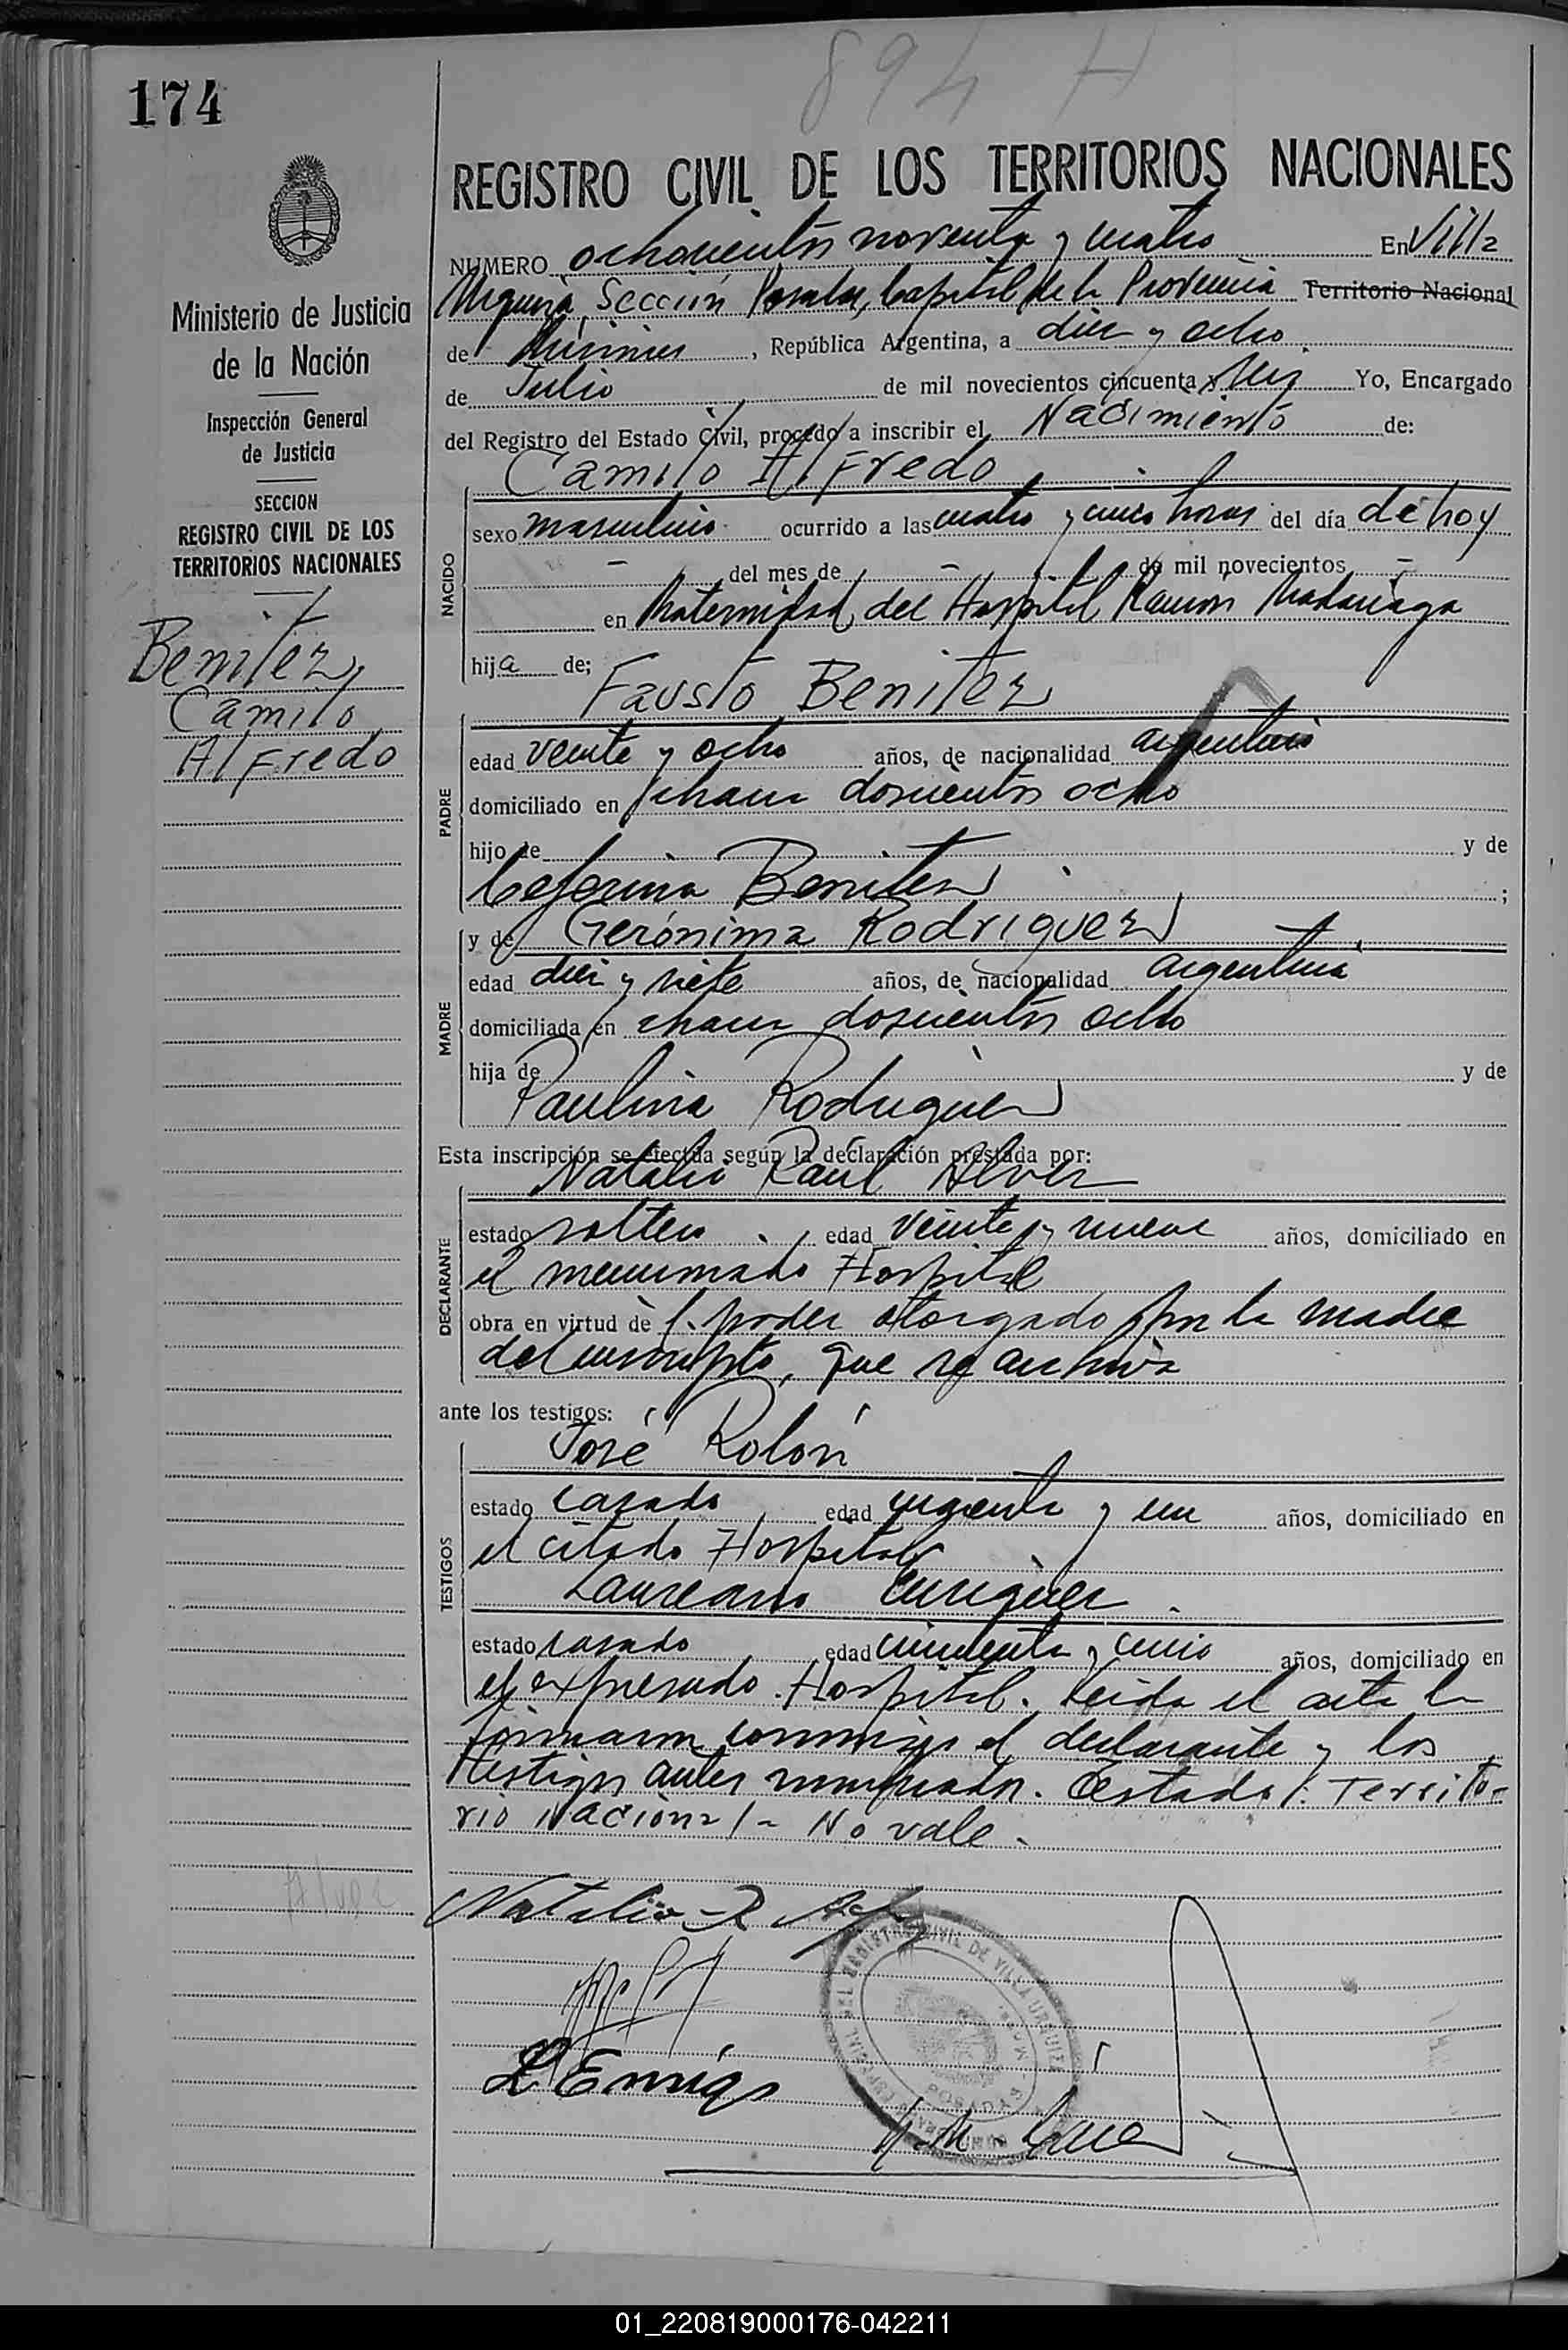 894 H
174
REGISTRO CIVIL DE LOS TERRITORIOS NACIONALES
NUMERO ochocientos noventa y cuatro En Villa
Urquiza, Sección Posadas, Capital de la Provincia Territorio Nacional
de Misiones, República Argentina, a diez y ocho
de Julio de mil novecientos cincuenta y seis Yo, Encargado
del Registro del Estado Civil, procedo a inscribir el Nacimiento de:
Camilo Alfredo
NACIDO
sexo masculino ocurrido a las cuatro y cinco horas del día de hoy
- del mes de - de mil novecientos -
en Maternidad del Hospital Ramon Madariaga
hija de:
Fausto Benitez
PADRE
edad veinte y ocho años, de nacionalidad argentino
domiciliado en chacra doscientos ocho
hijo de y de
Ceferina Benitez ;
y de Gerónima Rodriguez
MADRE
edad diez y siete años, de nacionalidad argentina
domiciliada en chacra doscientos ocho
hija de y de
Paulina Rodriguez
Esta inscripción se efectúa según la declaración prestada por:
Natalio Raul Alvez
DECLARANTE
estado soltero edad veinte y nueve años, domiciliado en
el mencionado Hospital
obra en virtud de poder otorgado por la madre
del inscripto, que se archiva
ante los testigos:
José Rolón
TESTIGOS
estado casado edad cuarenta y un años, domiciliado en
el citado Hospital
Laureano Enriquez
estado casado edad cincuenta y cinco años, domiciliado en
el expresado Hospital. Leida el acta la
firmaron conmigo el declarante y los
testigos antes nombrados. Testado: Territo-
rio Nacional - No vale.
Natalio R.
L Enriq
Ministerio de Justicia
de la Nación
Inspección General
de Justicia
SECCION
REGISTRO CIVIL DE LOS
TERRITORIOS NACIONALES
Benitez,
Camilo
Alfredo
Alvez
REGISTRO CIVIL DE VILLA URQUIZA
POSADAS
01_220819000176-042211